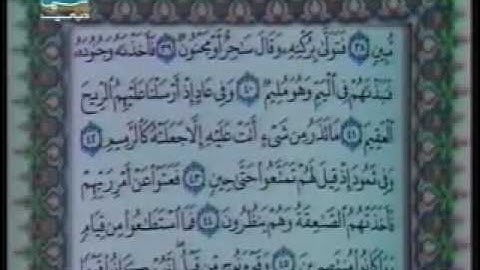 مُّبِينٍ ٣٨ فَتَوَلَّىٰ بِرُكْنِهِۦ وَقَالَ سَٰحِرٌ أَوْ مَجْنُونٌ ٣٩ فَأَخَذْنَٰهُ وَجُنُودَهُۥ
فَنَبَذْنَٰهُمْ فِي ٱلْيَمِّ وَهُوَ مُلِيمٌ ٤٠ وَفِي عَادٍ إِذْ أَرْسَلْنَا عَلَيْهِمُ ٱلرِّيحَ
ٱلْعَقِيمَ ٤١ مَا تَذَرُ مِن شَيْءٍ أَتَتْ عَلَيْهِ إِلَّا جَعَلَتْهُ كَٱلرَّمِيمِ ٤٢
وَفِي ثَمُودَ إِذْ قِيلَ لَهُمْ تَمَتَّعُوا۟ حَتَّىٰ حِينٍ ٤٣ فَعَتَوْا۟ عَنْ أَمْرِ رَبِّهِمْ
فَأَخَذَتْهُمُ ٱلصَّٰعِقَةُ وَهُمْ يَنظُرُونَ ٤٤ فَمَا ٱسْتَطَٰعُوا۟ مِن قِيَامٍ
وَمَا كَانُوا۟ مُنتَصِرِينَ ٤٥ وَقَوْمَ نُوحٍ مِّن قَبْلُ إِنَّهُمْ كَانُوا۟ قَوْمًا